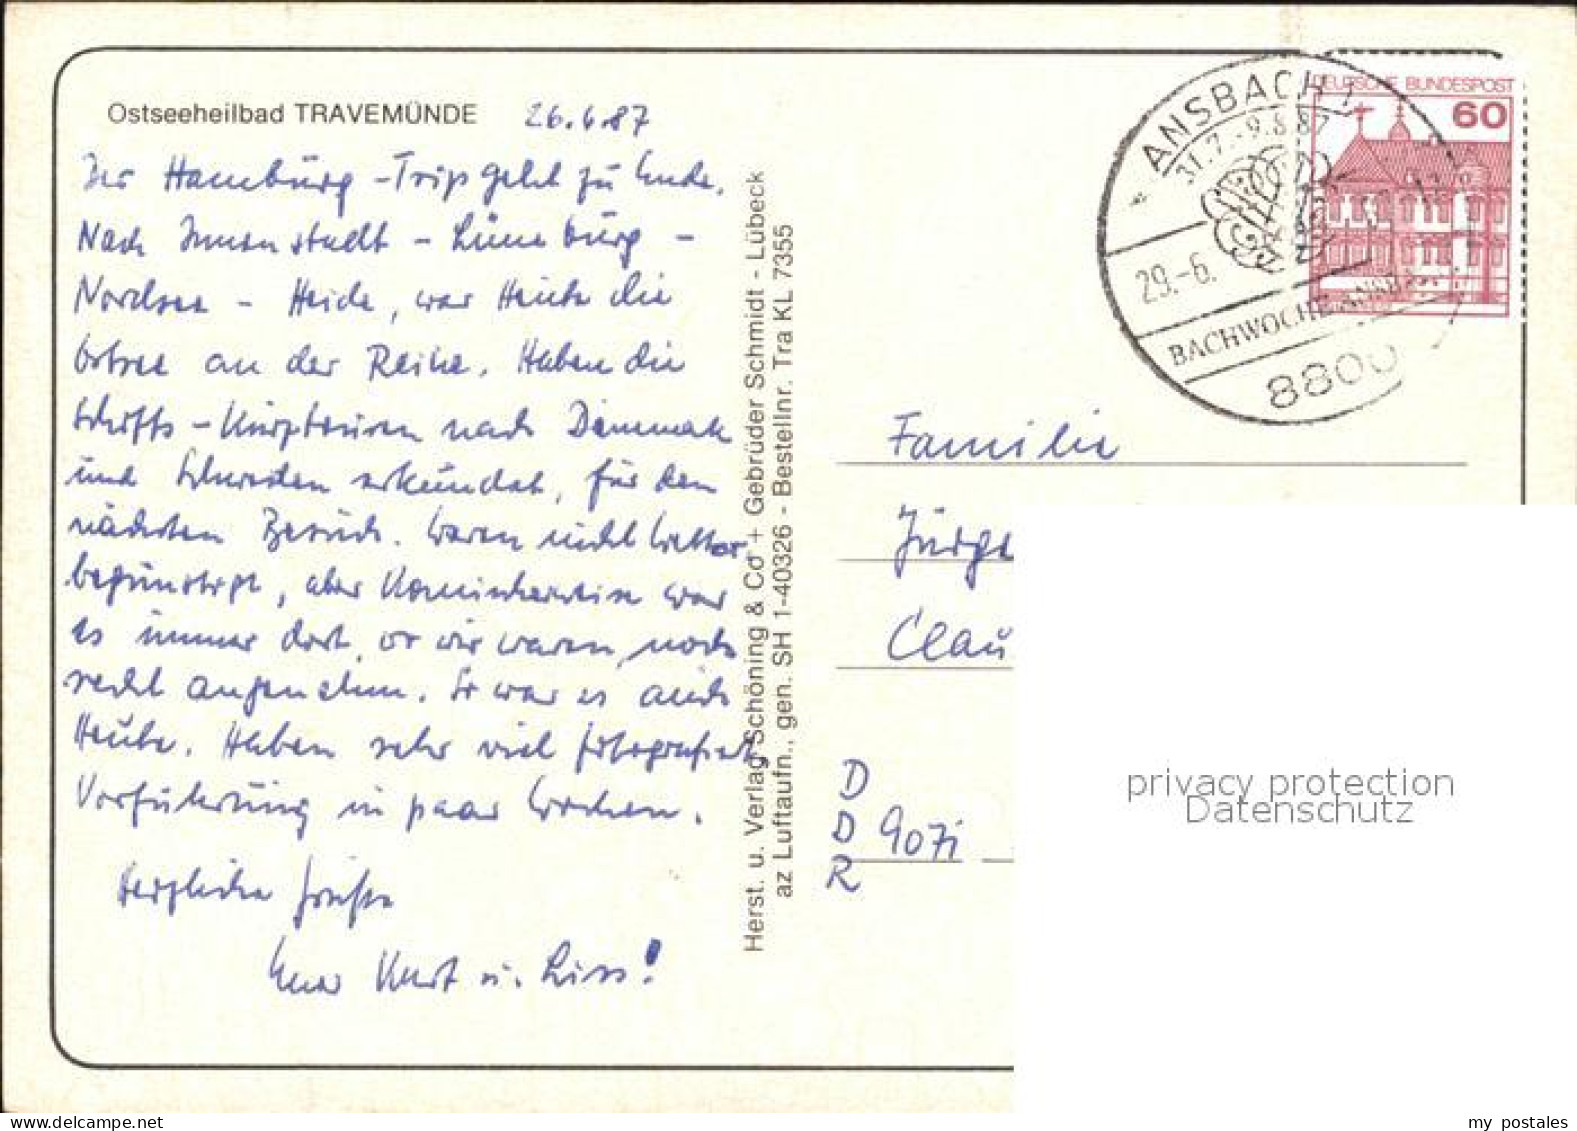 Ostseeheilbad TRAVEMÜNDE 26.6.87
Der Hamburg-Trip geht zu Ende.
Nach Innenstadt - Lüneburg -
Nordsee - Heide, war Heute die
Ostsee an der Reihe. Haben die
Schiffs - nach Dänemark
und Schweden erkundet, für den
nächsten Besuch. Waren nicht Wetter
begünstigt, aber war
es immer dort, wo wir waren, noch
recht angenehm. So war es auch
Heute. Haben sehr viel fotografiert,
Vorführung in paar Wochen.
Herzliche Grüße
Euer Kurt u. Liss!
Herst. u. Verlag Schöning & Co + Gebrüder Schmidt - Lübeck
az Luftaufn., gen. SH 1-40326 - Bestellnr. Tra KL 7355
ANSBACH 1
31.7.-9.8.87
29.-6.
BACHWOCHE ANSBA
8800
DEUTSCHE BUNDESPOST
60
Familie
Jürge
Clau
D
D 9071
R
privacy protection
Datenschutz
my postales